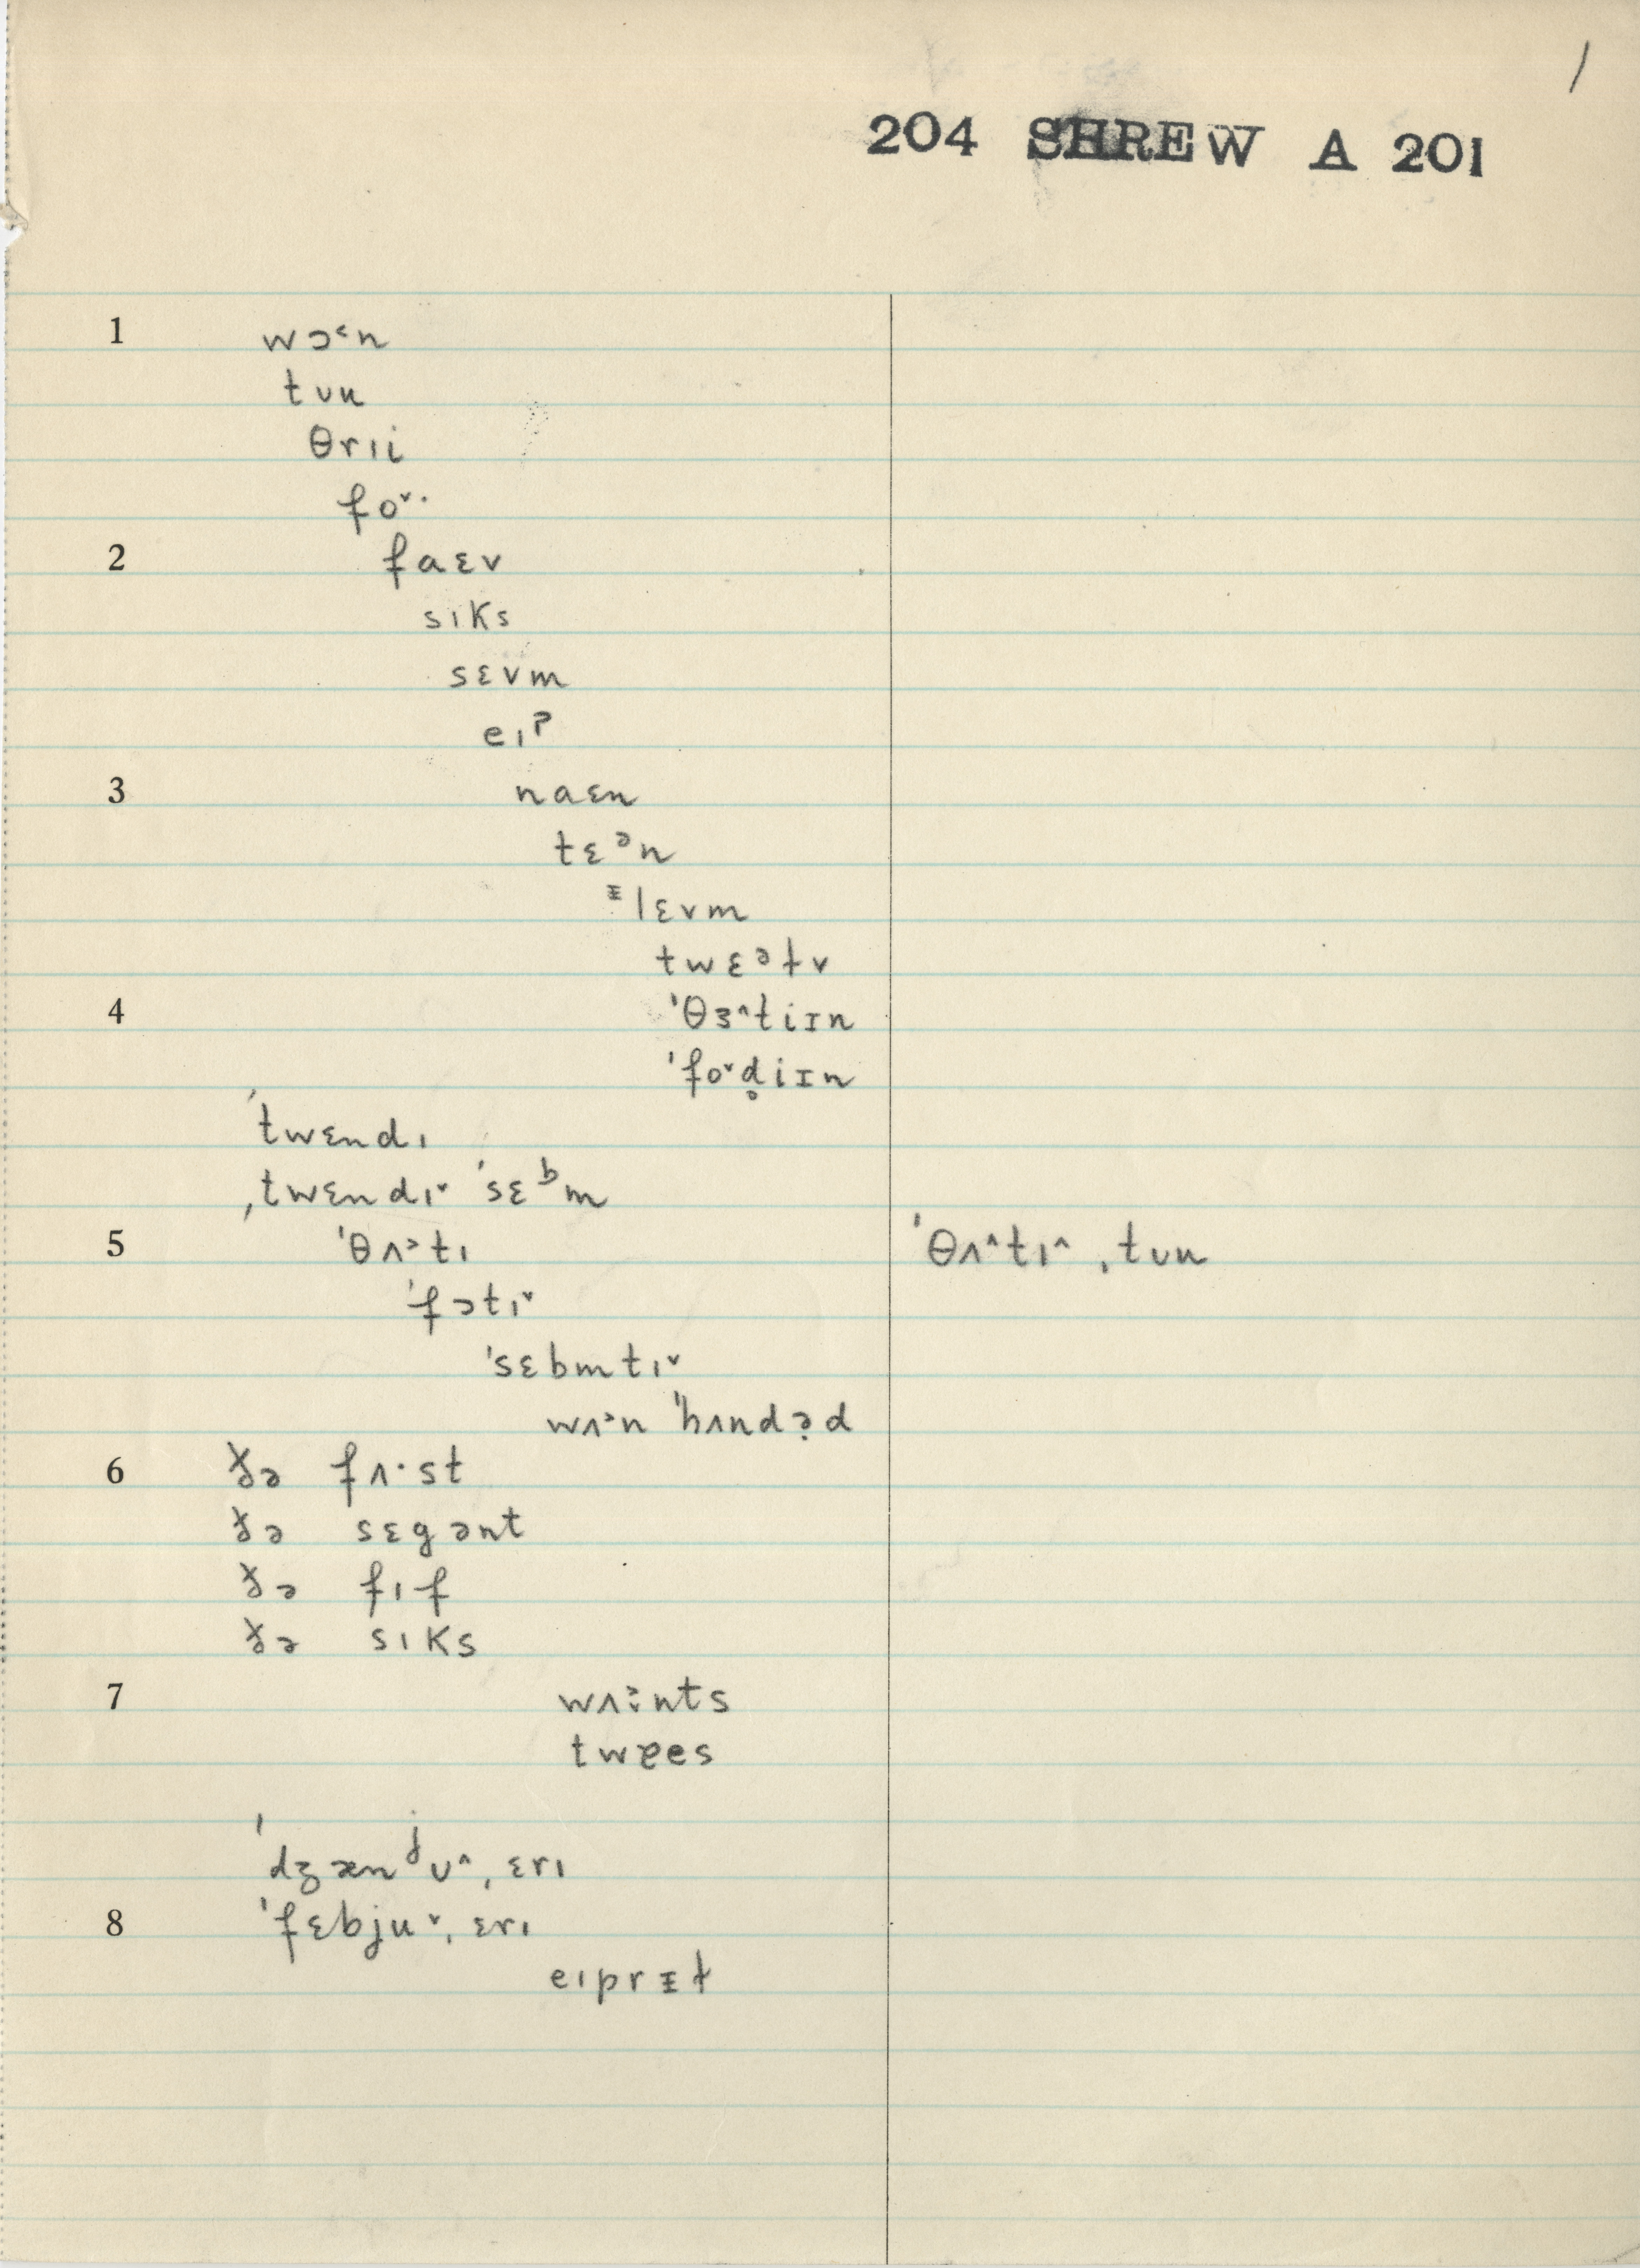 /
204 SHREW A 201
1 wɔ˂n
tʊu
θrɪi
fo˅·
2 faɛv
sɪks
sɛvm
eɪˀ
3 naɛn
tɛᵊn
ᵻlɛvm
twɛᵊɫv
4 ˈθɜ˄tiɪn
ˈfo˅d̥iɪn
ˈtwɛndɪ
ˌtwɛndɪ˅ ˈsɛᵇm
5 ˈθʌ˃tɪ ˈθʌ˄tɪ˄ ˌtʊu
ˈfɔtɪ˅
ˈsɛbmtɪ˅
wʌ˃n ˈhʌndəd
6 ɤ̵ə fʌ·st
ɤ̵ə sɛgənt
ɤ̵ə fɪf
ɤ̵ə sɪks
7 wʌ˃·nts
twɐes
ˈdʒænʲʊ˄ˌɛrɪ
8 ˈfɛbju˅ˌɛrɪ
eɪprᵻɫ